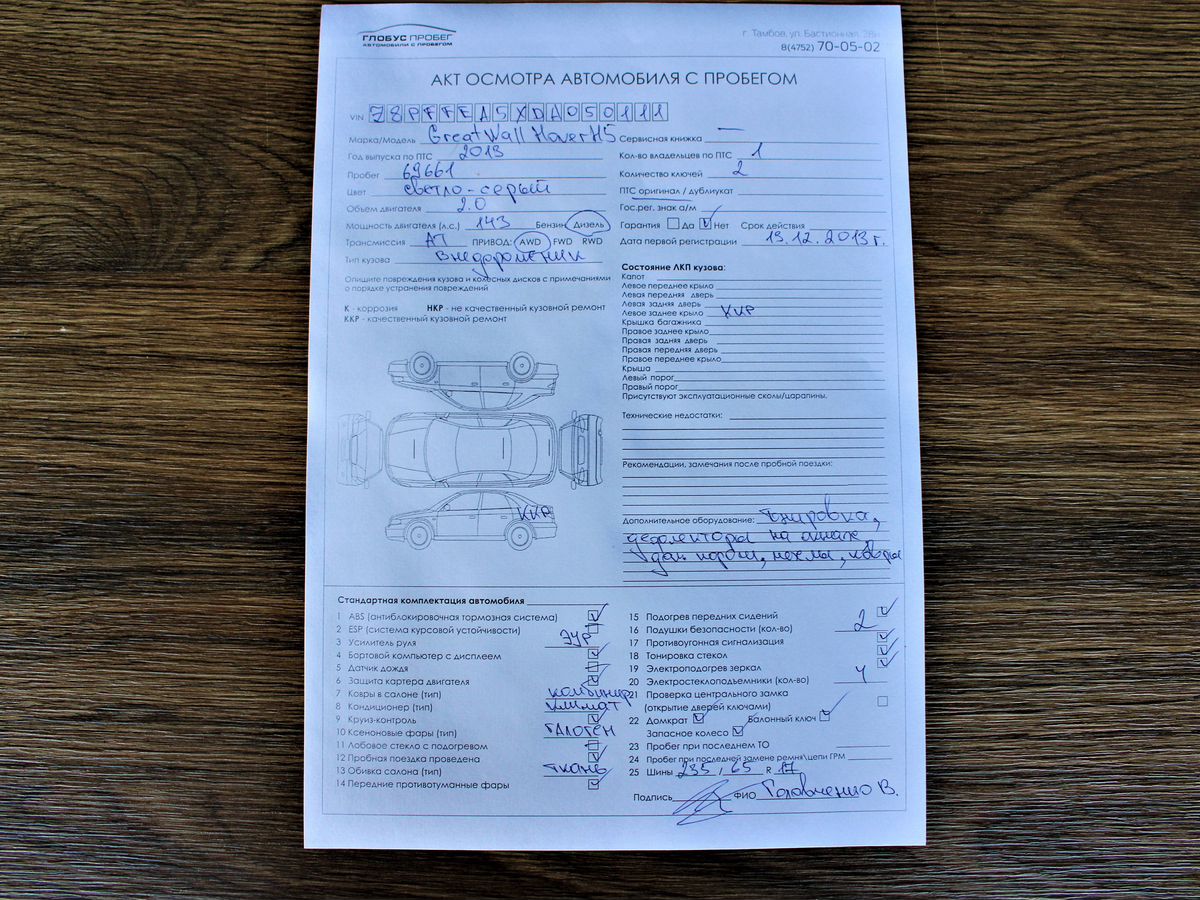 ГЛОБУС ПРОБЕГ
АВТОМОБИЛИ С ПРОБЕГОМ
г. Тамбов, ул. Бастионная, 28и
8(4752) 70-05-02
АКТ ОСМОТРА АВТОМОБИЛЯ С ПРОБЕГОМ
VIN Z8PFFEA5XDA050111
Марка/Модель Great Wall Hover H5
Год выпуска по ПТС 2013
Пробег 69661
Цвет светло-серый
Объем двигателя 2.0
Мощность двигателя (л.с.) 143 Бензин Дизель
Трансмиссия АТ ПРИВОД: AWD FWD RWD
Тип кузова Внедорожник
Опишите повреждения кузова и колесных дисков с примечаниями
о порядке устранения повреждений
К - коррозия НКР - не качественный кузовной ремонт
ККР - качественный кузовной ремонт
ККР
Сервисная книжка —
Кол-во владельцев по ПТС 1
Количество ключей 2
ПТС оригинал / дубликат
Гос.рег. знак а/м
Гарантия Да Нет Срок действия
Дата первой регистрации 13.12.2013 г.
Состояние ЛКП кузова:
Капот
Левое переднее крыло
Левая передняя дверь
Левая задняя дверь
Левое заднее крыло ККР
Крышка багажника
Правое заднее крыло
Правая задняя дверь
Правая передняя дверь
Правое переднее крыло
Крыша
Левый порог
Правый порог
Присутствуют эксплуатационные сколы/царапины.
Технические недостатки:
Рекомендации, замечания после пробной поездки:
Дополнительное оборудование: Тонировка,
дефлекторы на окнах,
ковры
Стандартная комплектация автомобиля
1 ABS (антиблокировочная тормозная система)
2 ESP (система курсовой устойчивости)
3 Усилитель руля ЭУР
4 Бортовой компьютер с дисплеем
5 Датчик дождя
6 Защита картера двигателя
7 Ковры в салоне (тип) комбинир
8 Кондиционер (тип) климат
9 Круиз-контроль
10 Ксеноновые фары (тип) галоген
11 Лобовое стекло с подогревом
12 Пробная поездка проведена
13 Обивка салона (тип) ткань
14 Передние противотуманные фары
15 Подогрев передних сидений
16 Подушки безопасности (кол-во) 2
17 Противоугонная сигнализация
18 Тонировка стекол
19 Электроподогрев зеркал
20 Электростеклоподъемники (кол-во) 4
21 Проверка центрального замка
(открытие дверей ключами)
22 Домкрат Балонный ключ
Запасное колесо
23 Пробег при последнем ТО
24 Пробег при последней замене ремня\цепи ГРМ
25 Шины 235 / 65 R 17
Подпись ФИО Головченко В.